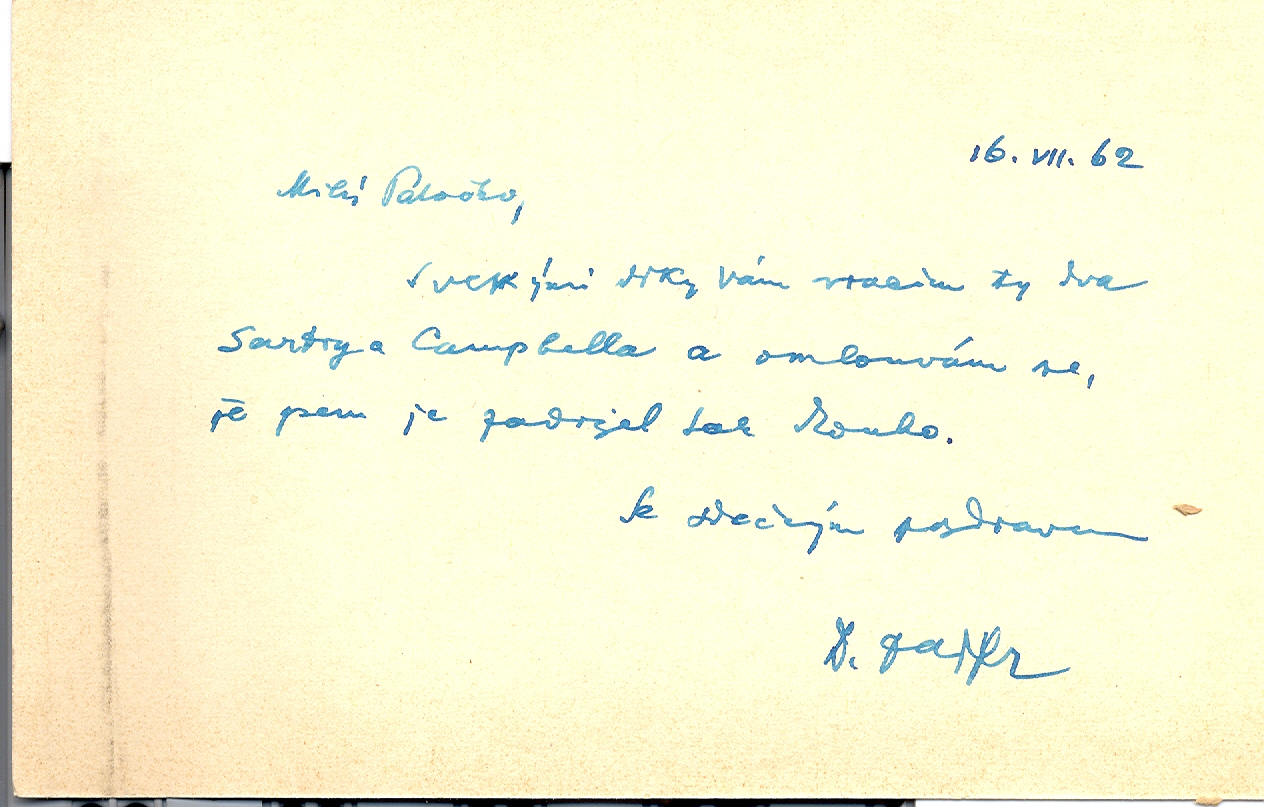 16. VII. 62
Milý
S velkými díky Vám vracím ty dva
Sartry a Campbella a omlouvám se,
že jsem je zadržel tak dlouho.
Se srdečným pozdravem